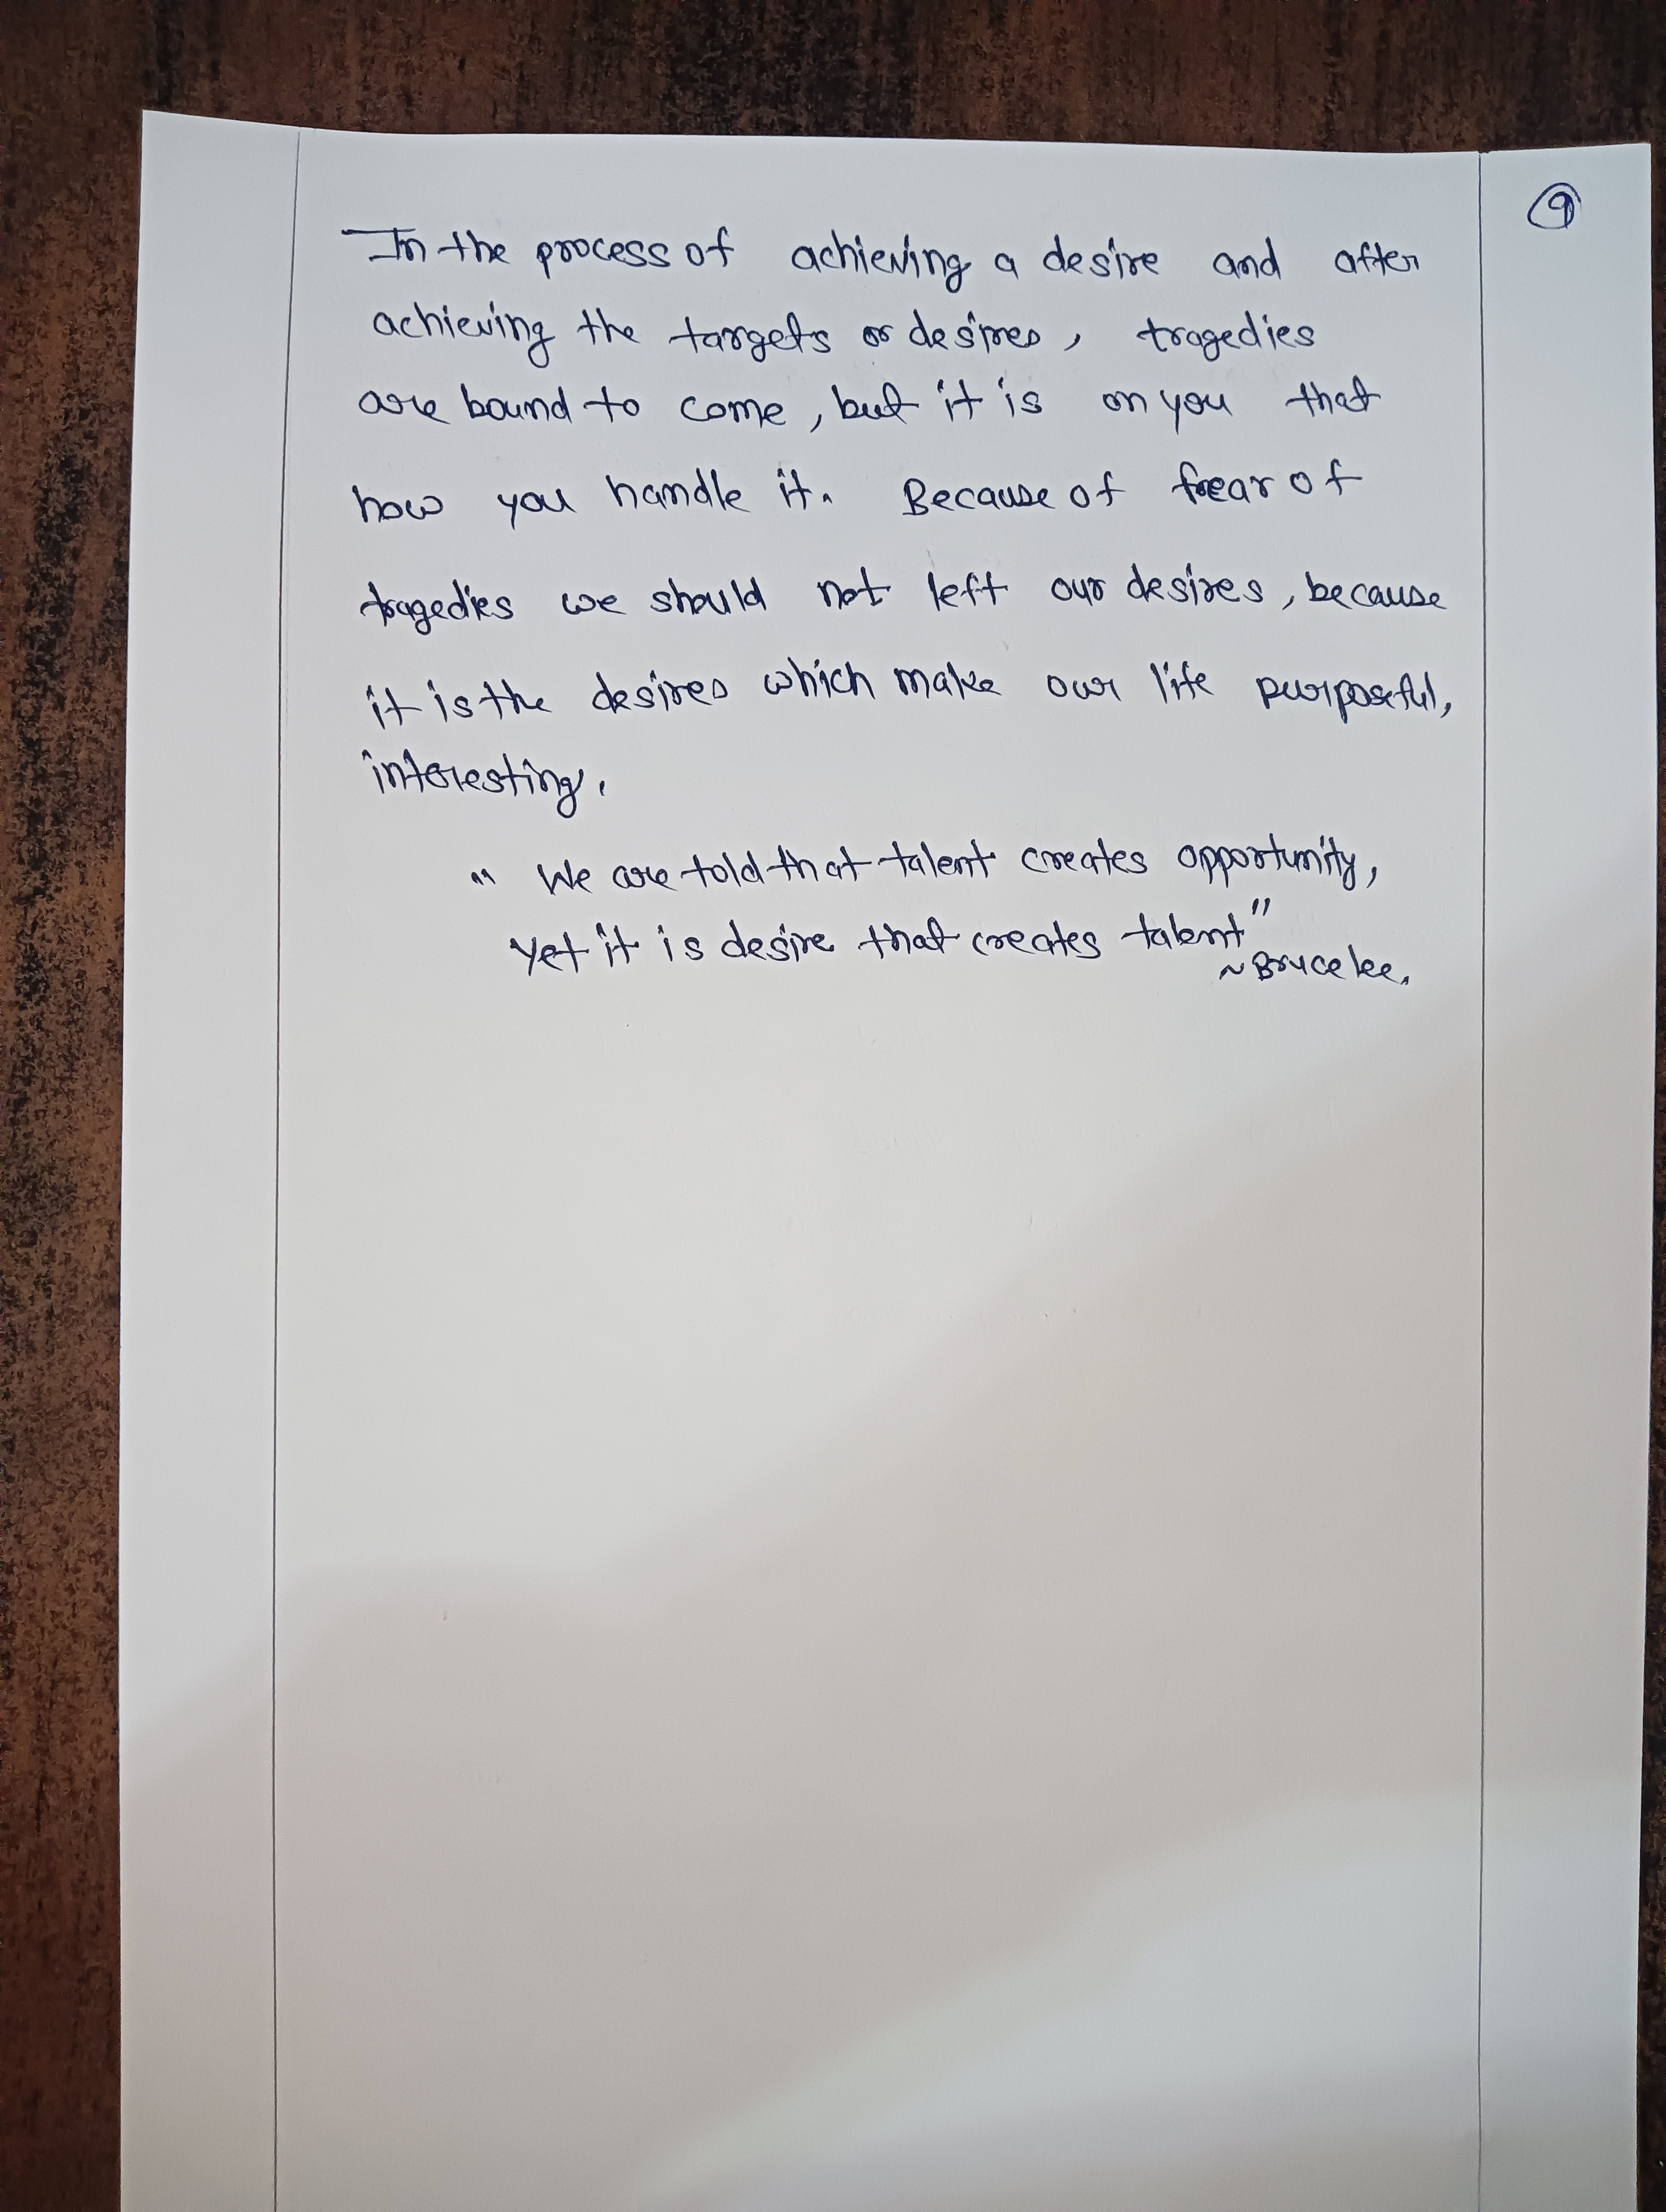 9
In the process of achieving a desire and after
achieving the targets or desires, tragedies
are bound to come, but it is on you that
how you handle it. Because of fear of
tragedies we should not left our desires, because
it is the desires which make our life purposeful,
interesting.
" We are told that talent creates opportunity,
yet it is desire that creates talent"
~Bruce lee.